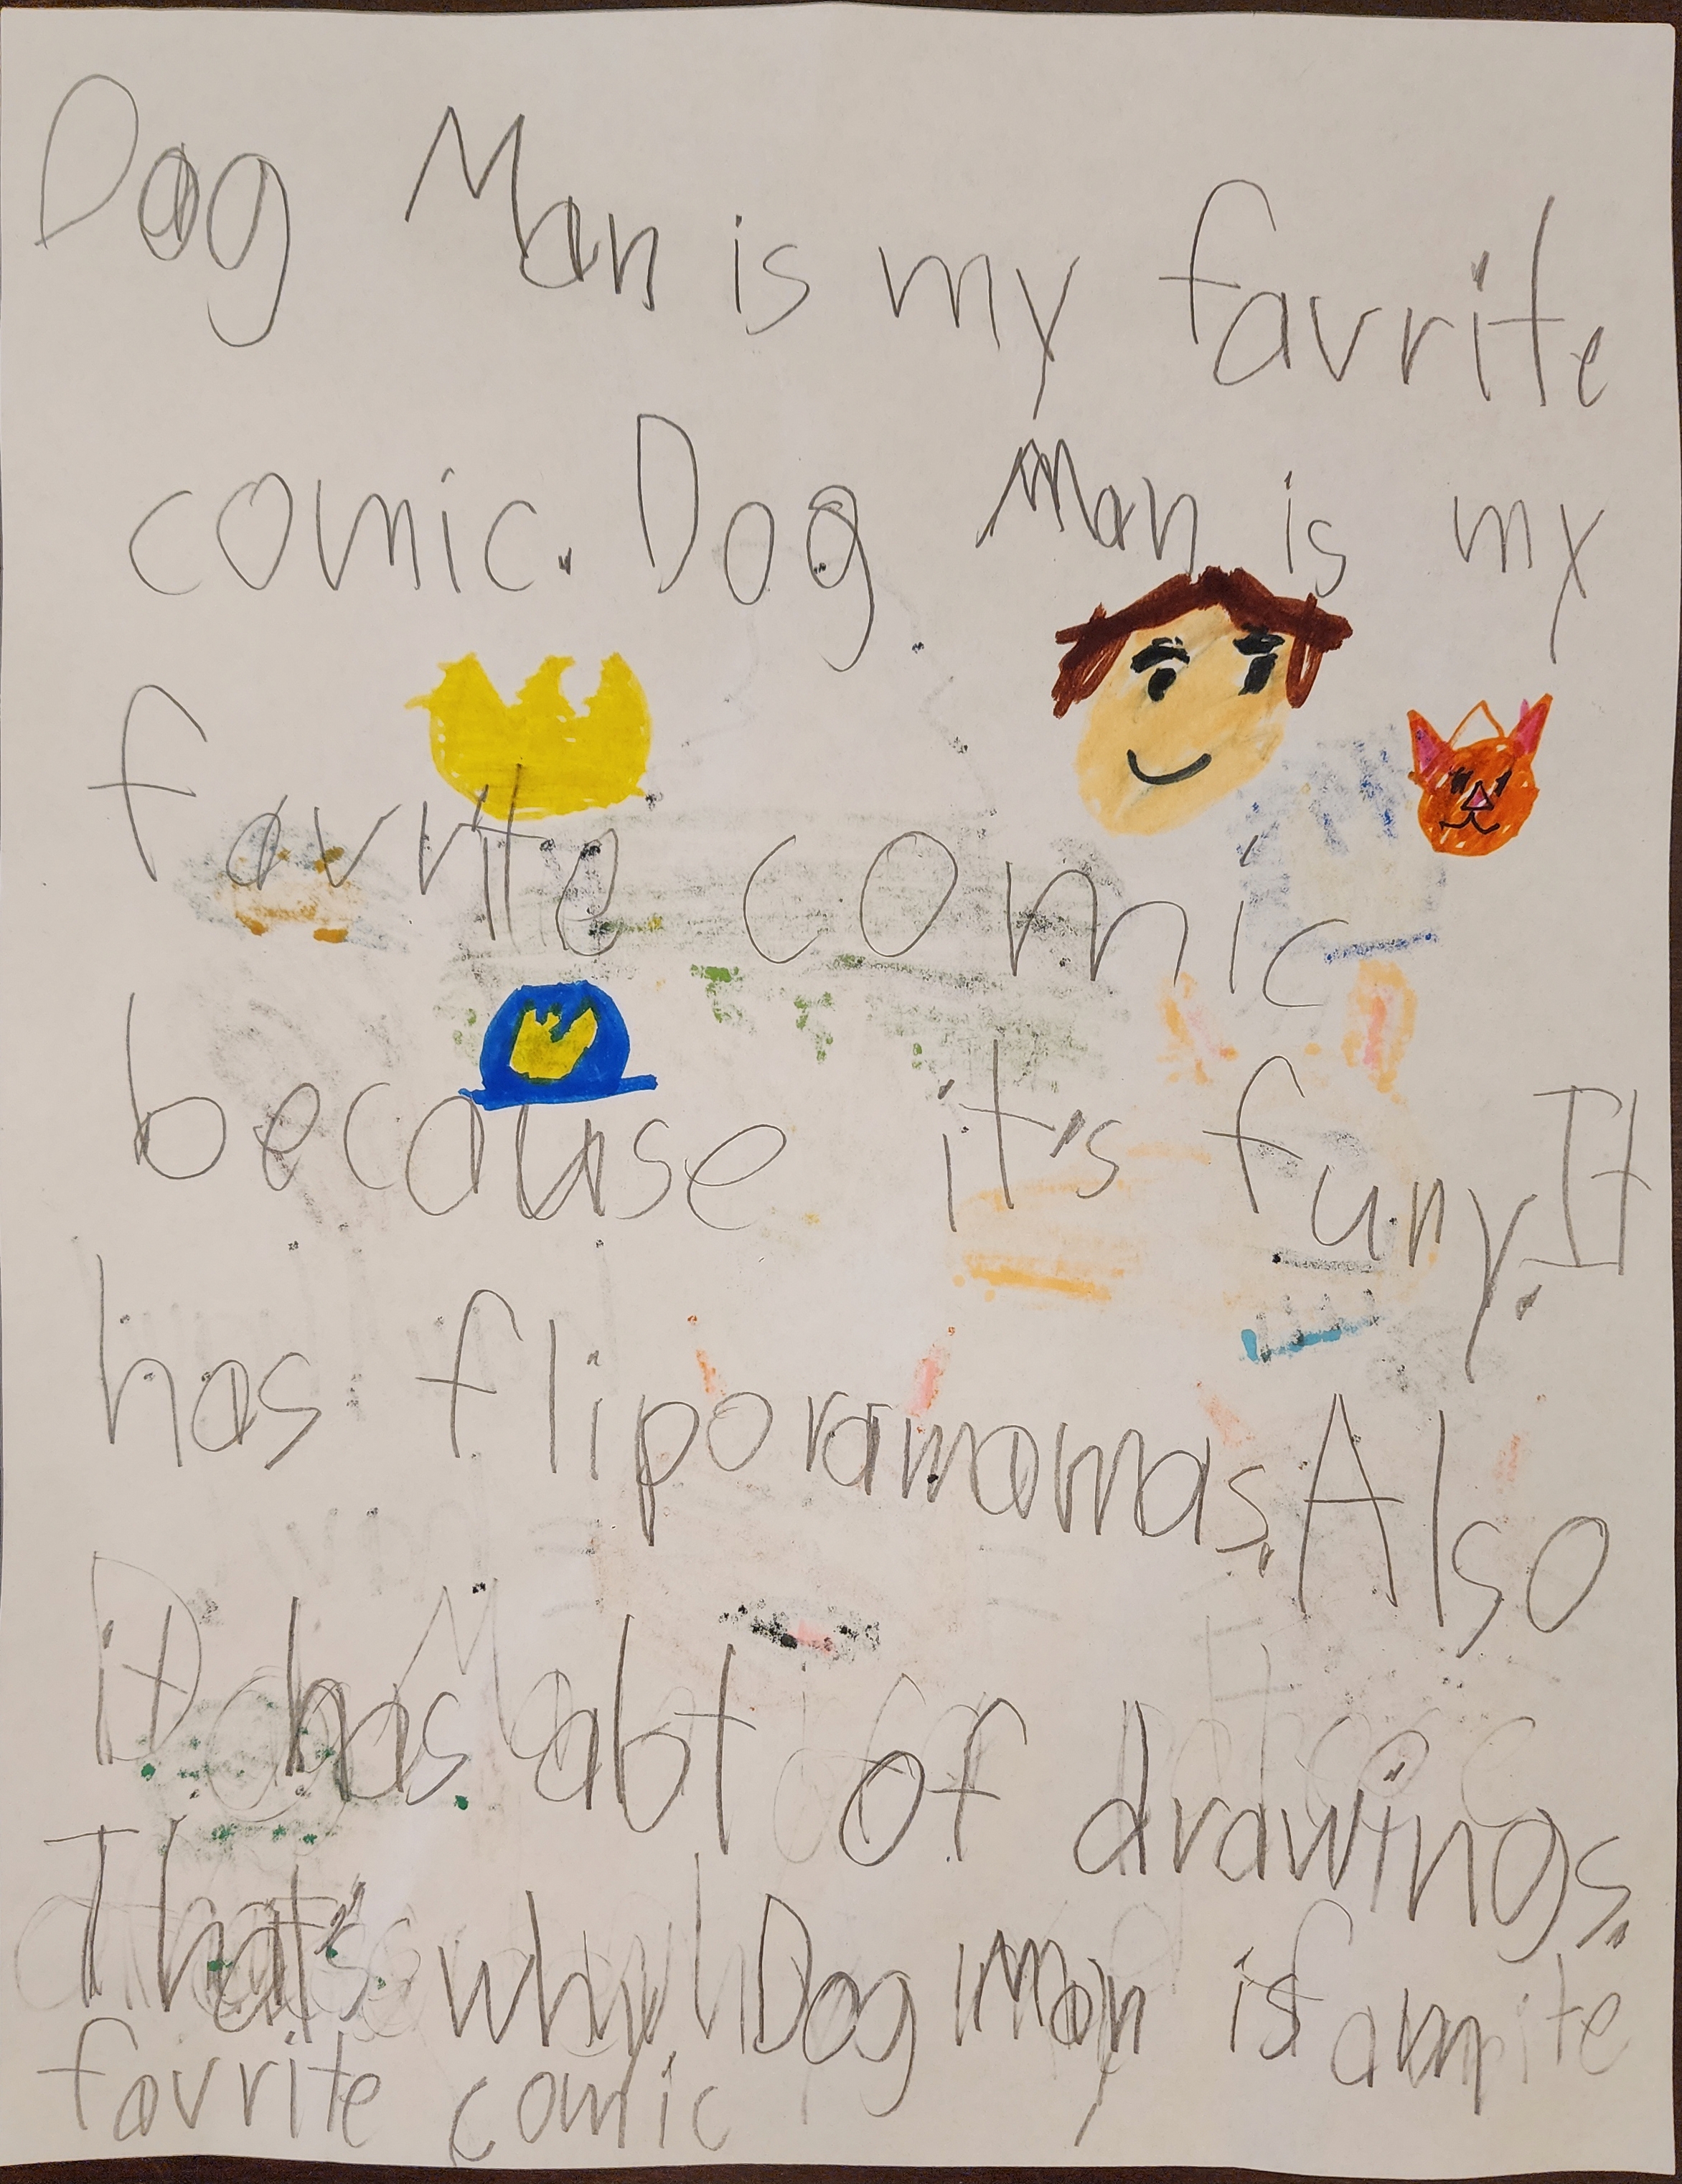 Dog Man is my favrite
comic. Dog Man is my
favrite comic
because it's funy. It
has fliporamamas. Also
it has alot of drawings.
That's why Dog Man is
favrite comic